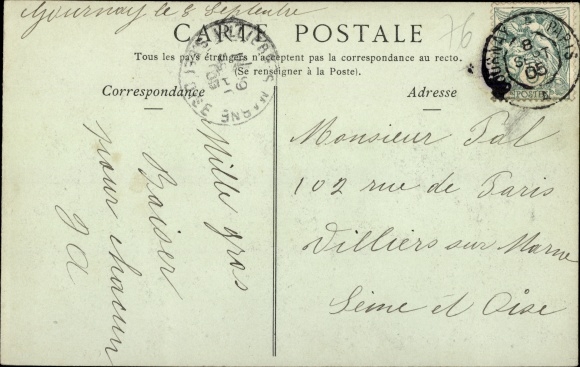 Gournay le 8 Septembre
CARTE POSTALE
76
Tous les pays étrangers n'acceptent pas la correspondance au recto.
(Se renseigner à la Poste).
Correspondance
Adresse
Mille gros
Baiser
pour chacun
J A
Monsieur Pal
102 rue de Paris
Villiers sur Marne
Seine et Oise